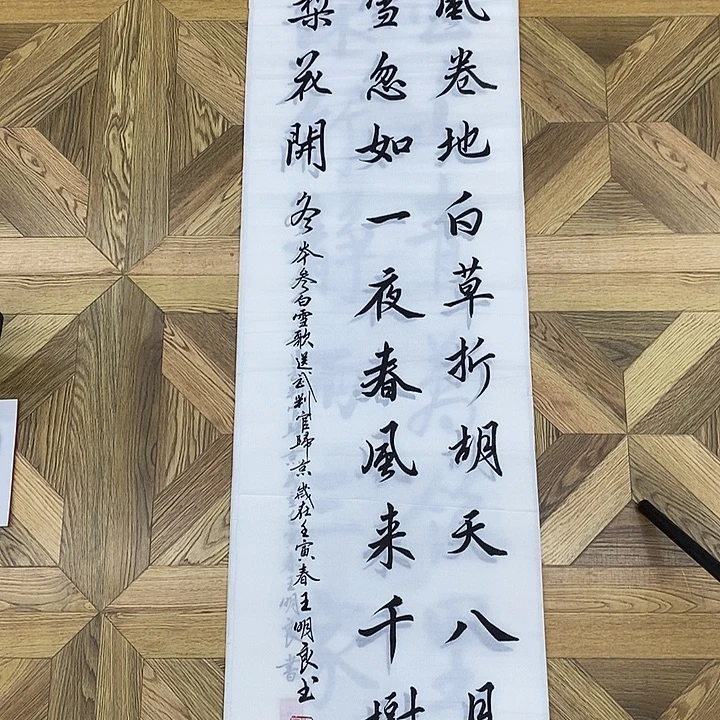 風卷地白草折胡天八月
雪忽如一夜春風来千樹
梨花開
岑参白雪歌送武判官歸京歳在壬寅春王明良书